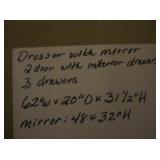 Dresser with mirror
2 door with interior drawers
3 drawers
62"W x 20"D x 31½"H
mirror: 48 x 32"H